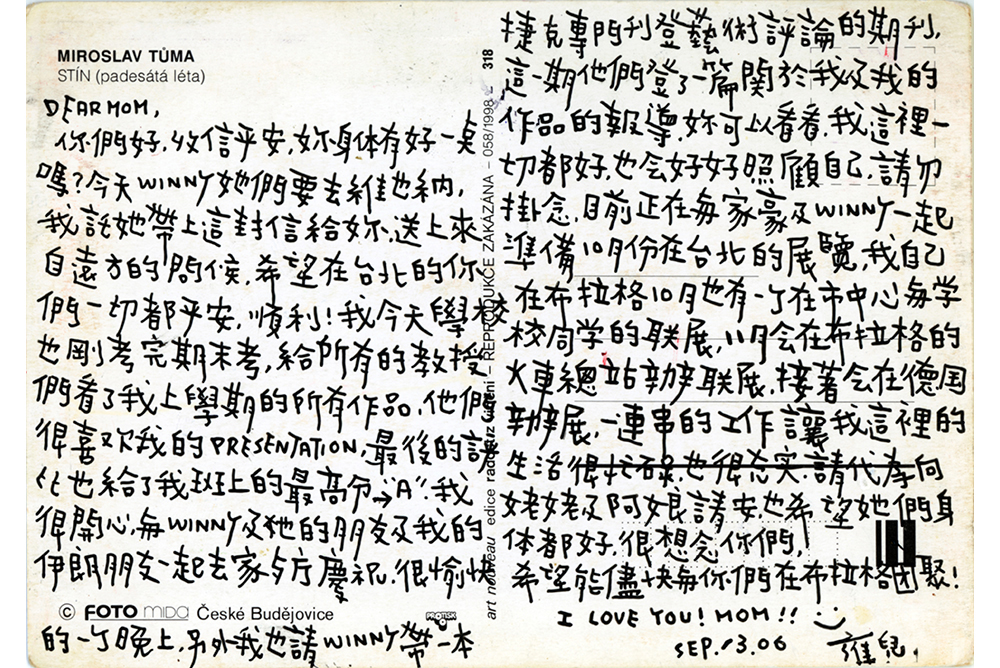 MIROSLAV TŮMA
STÍN (padesátá léta)
DEAR MOM,
你們好,收信平安,妳身体有好一点
嗎?今天WINNY她們要去維也納,
我託她帶上這封信給妳,送上來
自遠方的問候,希望在台北的你
們一切都平安,順利!我今天學校
也剛考完期末考,給所有的教授
們看了我上學期的所有作品,他們
很喜欢我的PRESENTATION,最後的評
比也給了我班上的最高分→"A".我
很開心,与WINNY及她的朋友及我的
伊朗朋友一起去家歺厅慶祝,很愉快
© FOTO MIDA České Budějovice
PROTISK
的一个晚上,另外我也請WINNY帶一本
art nouveau edice radouz – REPRODUKCE ZAKÁZÁNA – 058/1998 318
捷克專門刊登藝術評論的期刊,
這一期他們登了一篇關於我及我的
作品的報導,妳可以看看,我這裡一
切都好,也会好好照顧自己,請勿
掛念,目前正在与家豪及WINNY一起
準備10月份在台北的展覽,我自己
在布拉格10月也有一个在市中心与学
校同学的联展,11月会在布拉格的
火車總站辦联展,接著会在德国
辦展,一連串的工作讓我這裡的
生活很忙碌,也很充实,請代向
姥姥及阿娘請安,也希望她們身
体都好,很想念你們,
希望能儘快与你們在布拉格团聚!
I LOVE YOU! MOM!!
SEP.13.06
雍兒.